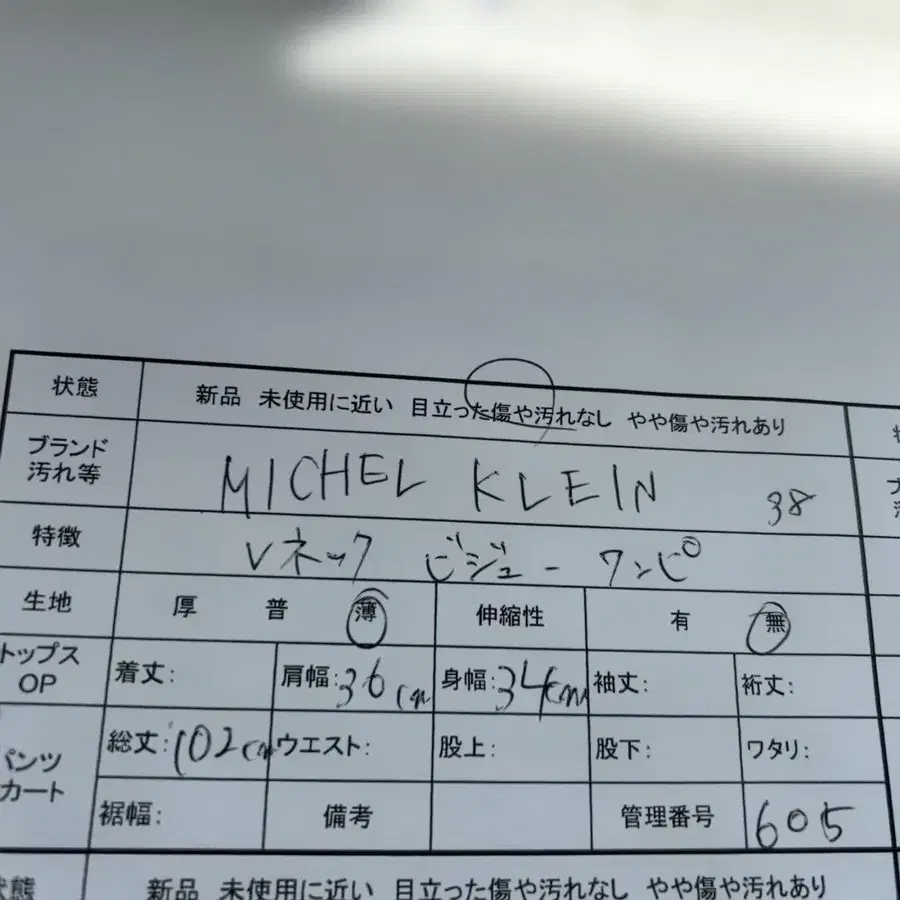 状態 新品 未使用に近い 目立った傷や汚れなし やや傷や汚れあり
ブランド 汚れ等 MICHEL KLEIN 38
特徴 Vネック ビジュー ワンピ
生地 厚 普 薄 伸縮性 有 無
トップス OP 着丈: 肩幅:36cm 身幅:34cm 袖丈: 裄丈:
総丈:102cm ウエスト: 股上: 股下: ワタリ:
パンツ
カート
裾幅: 備考 管理番号 605
状態 新品 未使用に近い 目立った傷や汚れなし やや傷や汚れあり